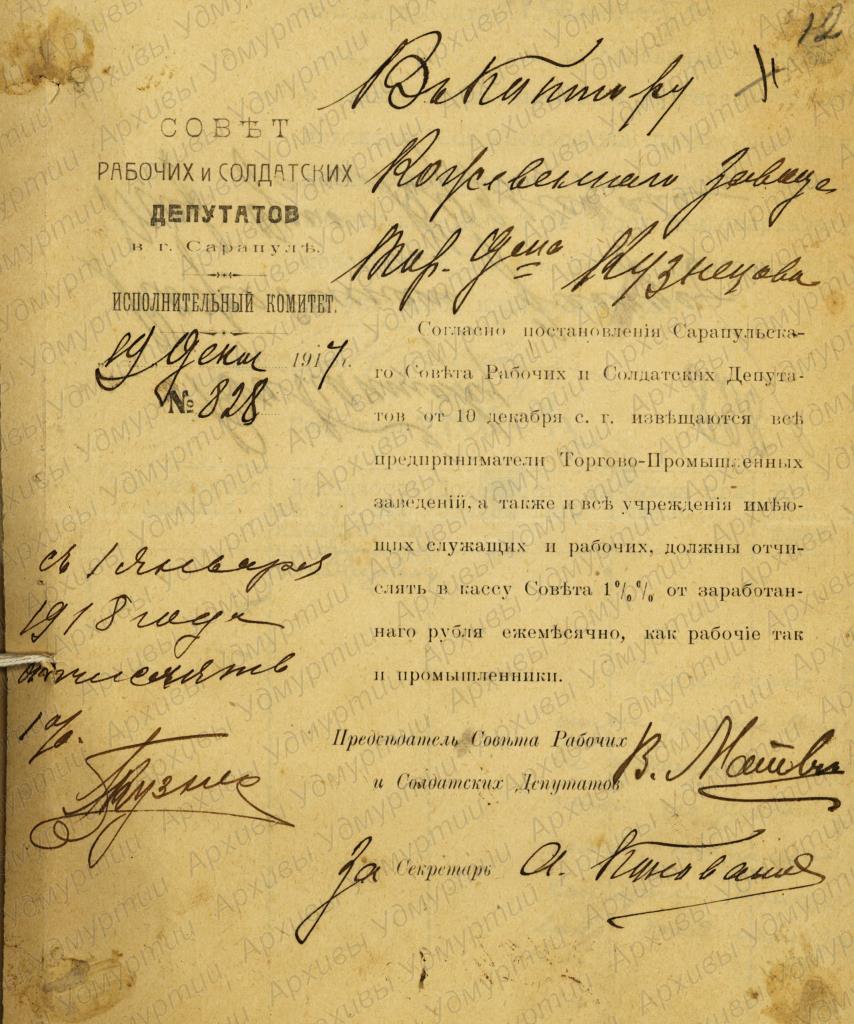 12
Въ Контору
Кожевеннаго завода
Тор. Дома Кузнецова
СОВѢТ
РАБОЧИХ и СОЛДАТСКИХ
ДЕПУТАТОВ
в г. Сарапулѣ.
ИСПОЛНИТЕЛЬНЫЙ КОМИТЕТ.
19 Декаб 1917 г.
№ 828
Согласно постановленія Сарапульска-
го Совѣта Рабочих и Солдатских Депута-
тов от 10 декабря с. г. извѣщаются всѣ
предприниматели Торгово-Промышленных
заведеній, а также и всѣ учрежденія имѣю-
щих служащих и рабочих, должны отчи-
слять в кассу Совѣта 1%% от заработан-
наго рубля ежемѣсячно, как рабочіе так
и промышленники.
съ 1 января
1918 года
отчислять
1%.
Кузнец
Предсѣдатель Совѣта Рабочих
и Солдатских Депутатов В. Матвѣ
За Секретарь А.
Архивы Удмуртии